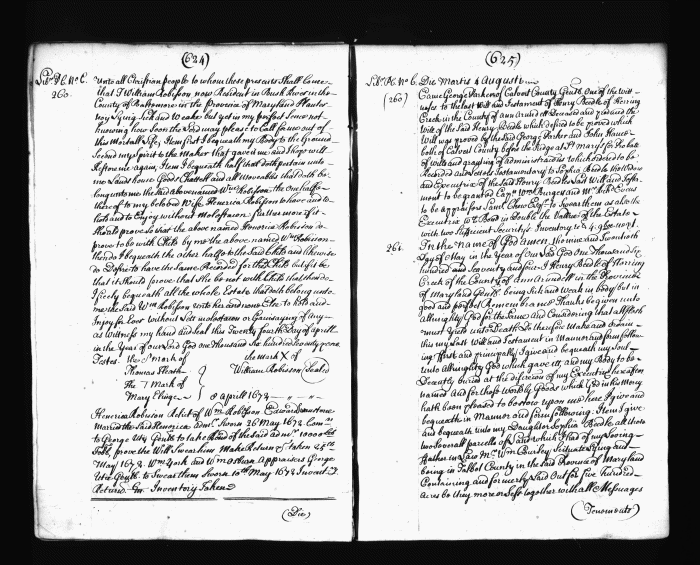 (624)
260
unto all Christian people to whom these presents Shall Come
that I William Robisson now Resident in Bush River in the
County of Baltomore in the province of Maryland Planter
now Lying Sick and Weake but yet in my perfect Sence not
knowing how Soon the Lord may please to Call for me out of
this Mortall Life, Item first I bequeath my Body to the Ground
Second my Spirit to the Maker that gave it me and
againe, Item I bequeath half that doth
me Land house Goods Chattell and all Moveables that doth be
long unto me the Said above named Wm Robisson, the one halfe
thereof to my beloved Wife Henerica Robisson to have and to
hold and to Enjoy without Molestacon further more if it
Should prove So that the above named Henerica Robisson do
prove to be with Child by me the above named Wm Robisson
then do I bequeath the other half to the Said Child and likewise
do Desire to have the Same Recorded for the Child but if it be
that it Should prove that She be not with Child that then do
I freely bequeath all the whole Estate that doth belong unto
me the Said Wm Robisson unto her and none Else to hold and
Enjoy for Ever without Lett molestacon or Gainsaying of any
as Witness my hand and Seal this Twenty fourth Day of aprill
in the Year of our Lord God one Thousand Six hundred Seventy
Testes. the mark of the Mark X of
Thomas Heath William Robisson Sealed
The 7 Mark of
Mary
8 aprill 1674
Henerica Robisson Relict of Wm Robisson Edward
Married the Said Henerica Admx Sworn 26 May 1672. Comn
to George Utie Gentl to take Bond of the Said admx 10000
Tobb, prove the Will Swear him Make Return taken 25th
May 1672 Wm York and Wm Osburn Appraisers George
Utie Gentl to Swear them Sworn 10th May 1672 Invent
Inventory Taken
(Die)
(625)
Die Martis 4 August
(260)
Came George Parker of Calvert County Gentl One of the Wit
nesses to the last Will and Testament of Henry Beedle of Herring
Creek in the County of ann arundell Deceased and
Wife of the Said Henry Beedle which desired to be proved which
Will was proved by the Said George Parker and John
both of Calvert County before the Judge at St Marys for Probate
of wills and granting of administracons which ordered to be
Recorded and Letters Testamentary to Sophia Beedle the Widow
and Executrix of the Said Henry Beedles Last Will and Testa
ment to be granted Wm Burges and Mr Evans
to be appraisors Saml Chew Esqr to Swear them as also the
Executrix to Bond in Double the Vallue of the Estate
with two Sufficient Securitys Inventory
261.
In the name of God amen Thirteene and Twentieth
Day of May in the Year of our Lord God One Thousand Six
hundred and Seventy and four I Henry Beedle of Herring
Creek of the County of Ann Arundell in the Province
of Maryland Gentl being Sick and weak in body but in
good and perfect Remembrance Thanks be given unto
Allmighty God for the Same and Considering that all flesh
must Yield unto Death Do therefore Make and ordain
this my Last Will and Testament in Manner and form follow
ing First and principally I give and bequeath my Soul
unto Allmighty God which gave it, and my Body to be
Decently buried at the discretion of my Executrix hereafter
named And for those worldly Goods which God in his Mercy
hath been pleased to bestow upon me here I give and
bequeath in Manner and form following. Item I give
and bequeath unto my Daughter Sophia Beedle all those
two Severall parcells of Land which I had of my Loving
Father in Law Mr Wm Burley Scituate Lying and
being in Talbott County in the Said Province of Maryland
Containing and formerly Laid Out for five hundred
acres be they more or Less together with all Messuages
(Tenements)